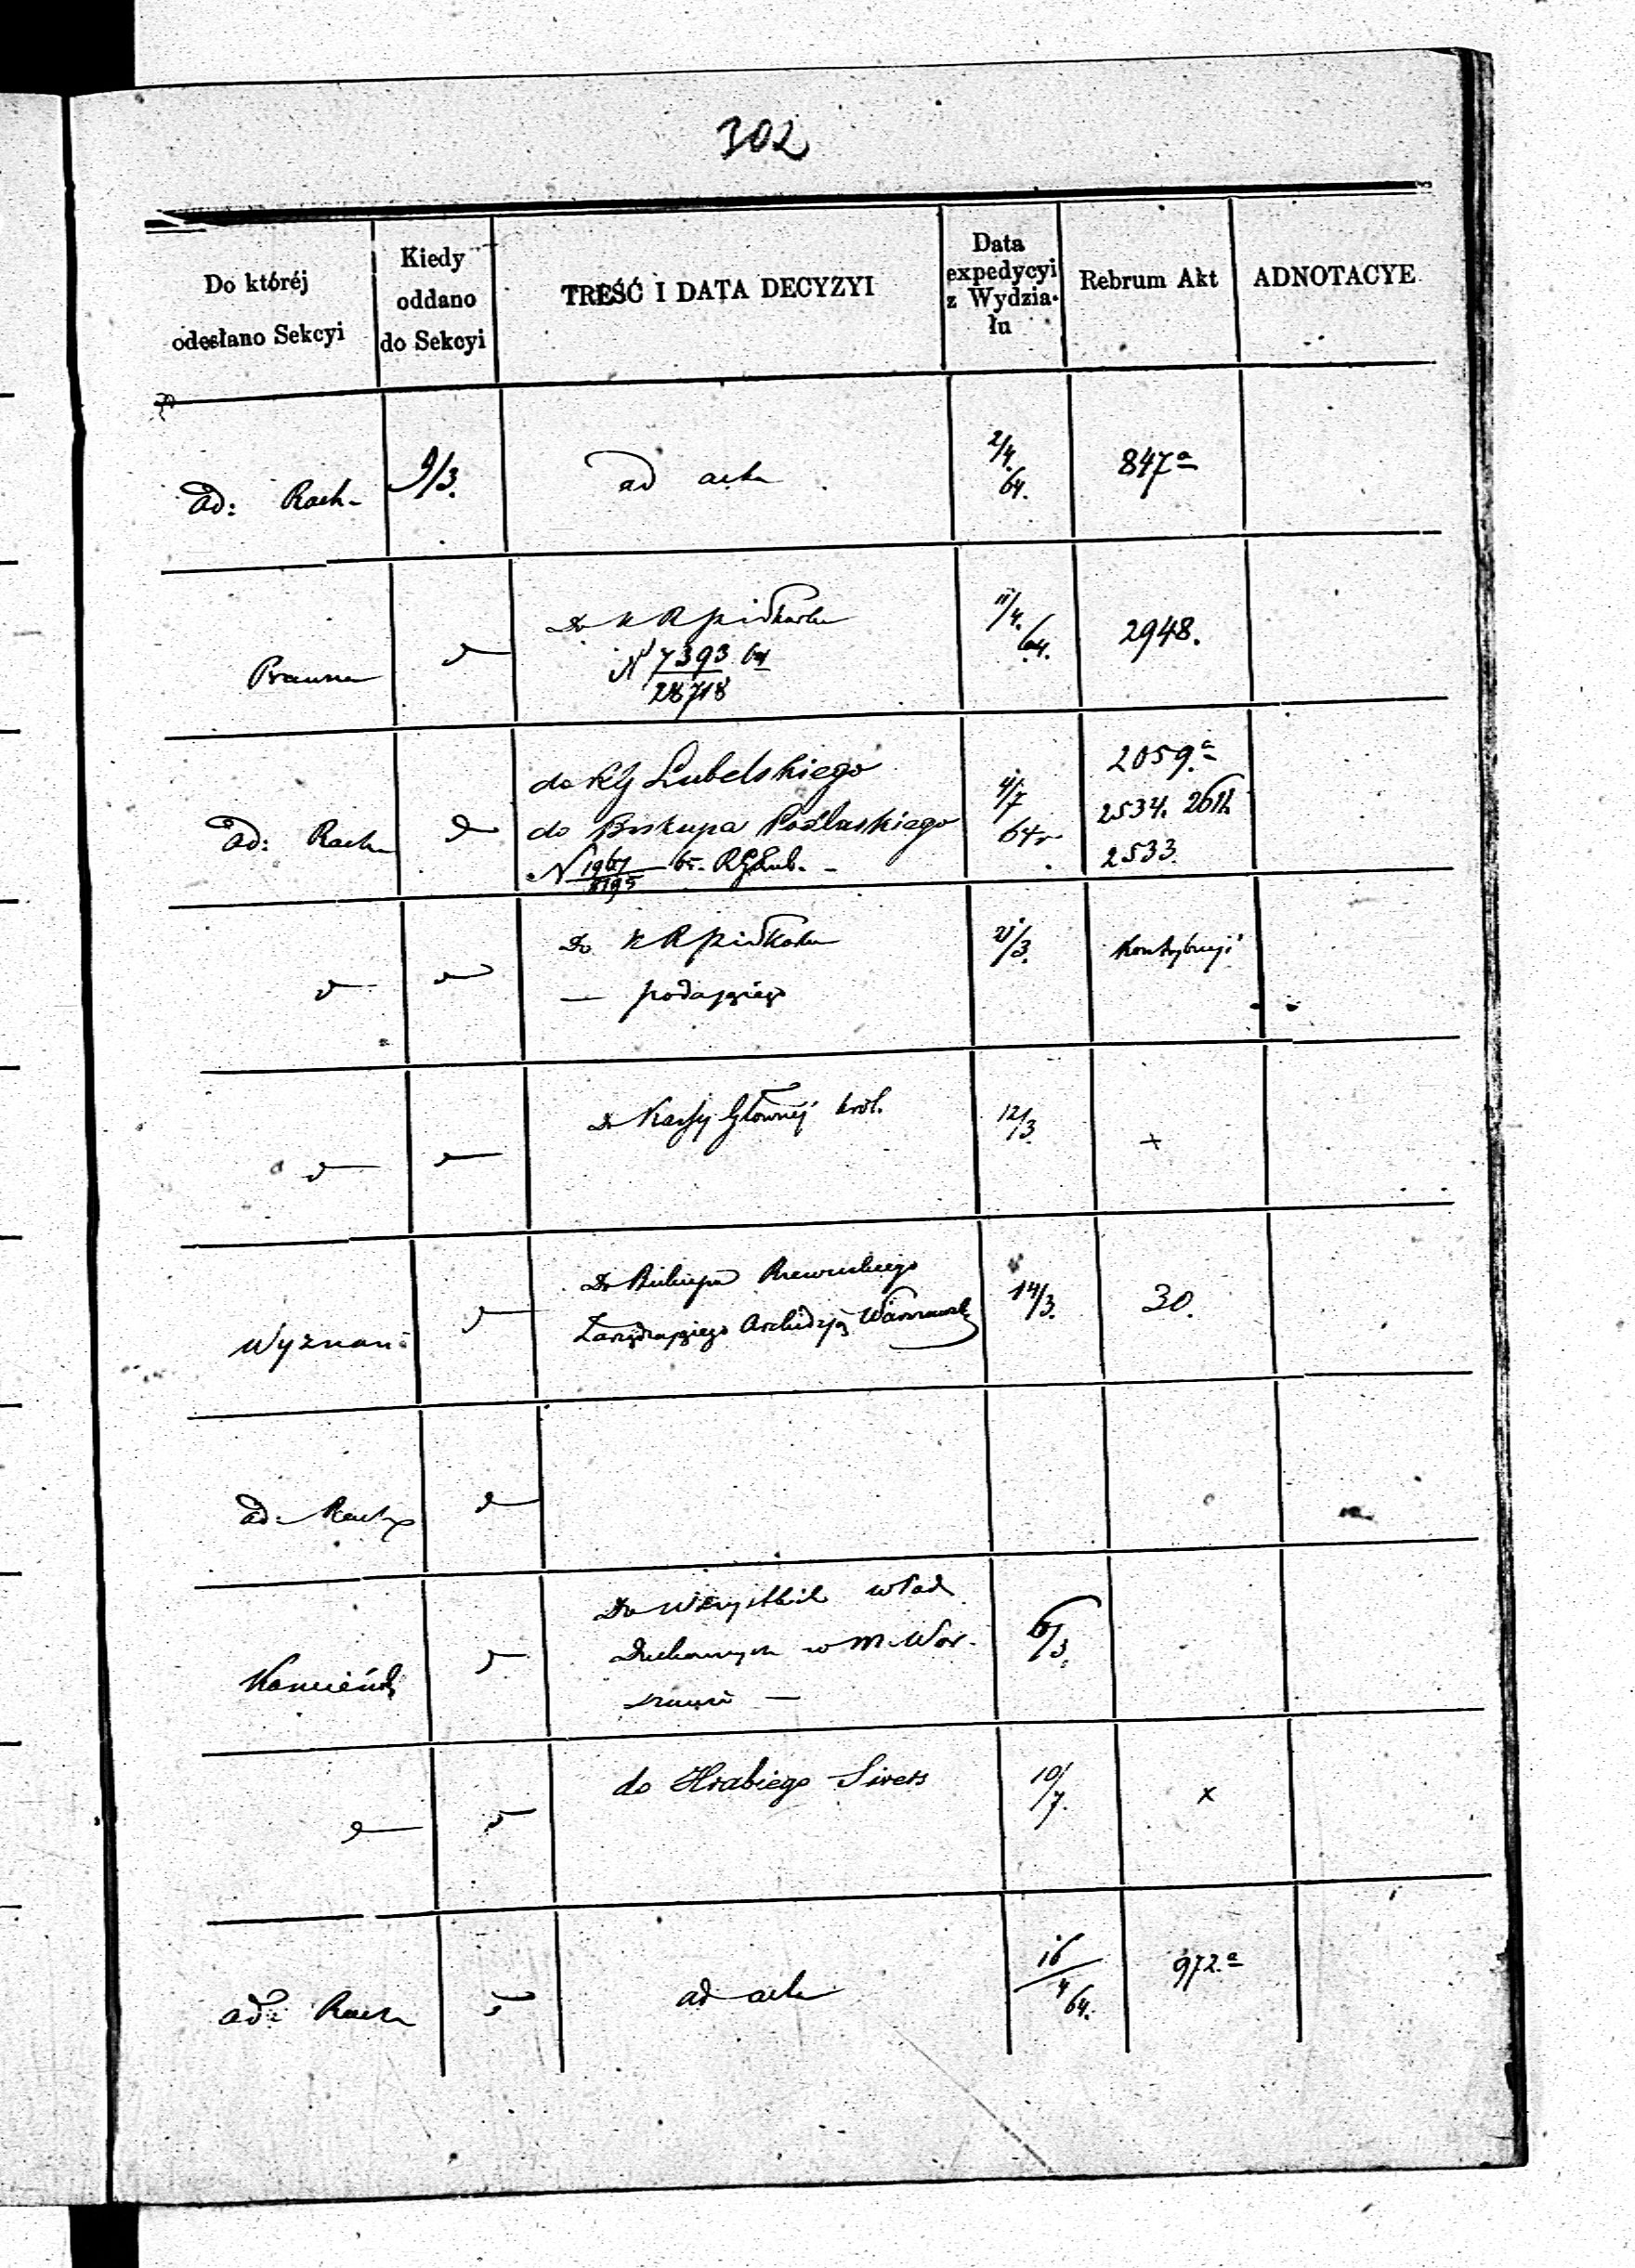 302
Do któréj
odesłano Sekcyi
Kiedy
oddano
do Sekcyi
TREŚĆ I DATA DECYZYI
Data
expedycyi
z Wydzia-
łu
Rebrum Akt
ADNOTACYE
ad: Rach-
9/3.
ad acta
2/4.
64.
847a
Prawna
Do K R
N 7393 64
28718
11/4.
64.
2948.
ad: Rach
do RG Lubelskiego
do Biskupa Podlaskiego
N 1961 65. RGLub. -
8195
64r
2059.a
2534.
2533.
Do K R
— podającego
21/3.
Do Kassy Głównéj Król.
12/3.
x
Wyznań
Do Biskupa Rzewuskiego
Zarządzającego Archidyą Warszawsk
14/3.
30.
ad. Rach
Do Wszystkich Wład
Duchownych w M. War-
szawie —
6/3.
do Hrabiego Sivers
10/7.
x
ad: Rach
ad acta
16/4
64.
972.a